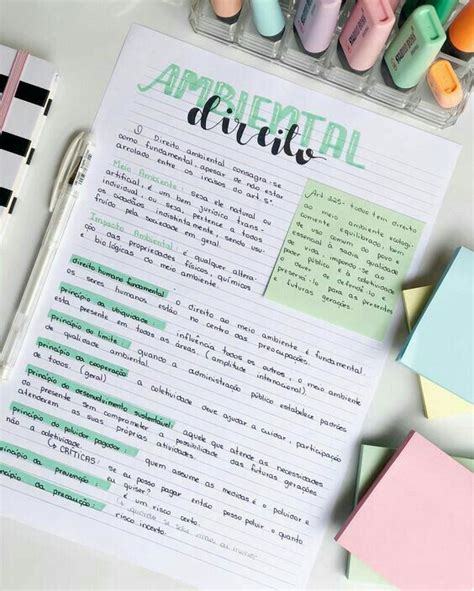 AMBIENTAL
direito
O Direito ambiental consagra-se
como fundamental, apesar de não estar
arrolado entre os incisos do art. 5º.
Meio Ambiente: seja ele natural ou
artificial, é um bem jurídico trans-
individual, ou seja, pertence a todos
os cidadãos indistintamente, sendo usu-
fruído pela sociedade em geral.
Impacto Ambiental: é qualquer altera-
ção das propriedades físicas, químicas
e biológicas do meio ambiente.
Art. 225. todos tem direito
ao meio ambiente ecologi-
camente equilibrado, bem
de uso comum do povo e
à qualidade
de vida, impondo-se ao
poder público e à coletividade
o dever de defendê-lo e
preservá-lo para as presentes
e futuras gerações.
direito humano fundamental: o direito ao meio ambiente é fundamental
os seres humanos estão no centro das preocupações.
princípio da ubiquidade: influencia todos os outros, o meio ambiente
esta presente em todas as áreas. (amplitude internacional).
princípio do limite: quando a administração pública estabelece padrões
de qualidade ambiental.
princípio da cooperação: a coletividade deve ajudar a cuidar, participação
de todos. (geral)
princípio do desenvolvimento sustentável: aquele que atende as necessidades
do presente sem comprometer a possibilidade das futuras gerações
atenderem as suas próprias atividades.
princípio do poluidor pagador: quem assume as medidas é o poluidor e
não a coletividade.
(↳ CRÍTICAS: se eu posso pagar então posso poluir o quanto
eu quiser?
princípio da prevenção: é um risco certo.
princípio da precaução: é quando se
risco incerto.